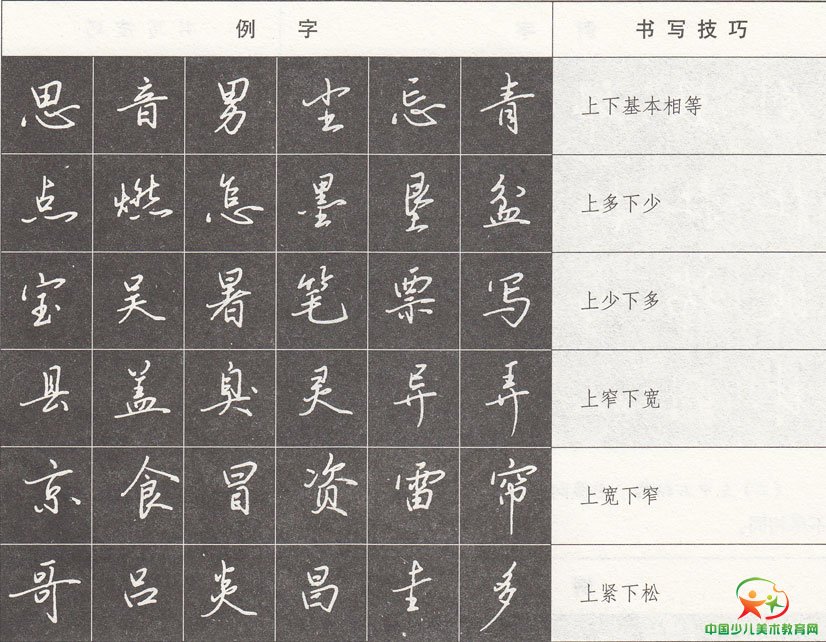 例 字 书写技巧
思 音 男 尘 忌 青 上下基本相等
点 燃 怎 墨 垦 盆 上多下少
宝 吴 暑 笔 票 写 上少下多
县 盖 臭 灵 异 弄 上窄下宽
京 食 冒 资 雷 帘 上宽下窄
哥 吕 炎 昌 圭 多 上紧下松
中国少儿美术教育网